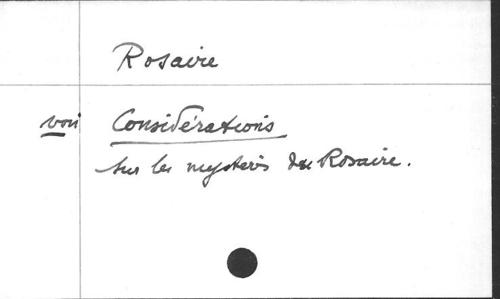 Rosaire
voir Considérations
sur les mystères du Rosaire.